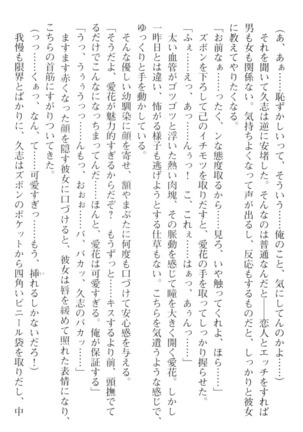 (あ、あぁ……恥ずかしいって、そういう……俺のこと、気にしてんのか……)
それを聞いて久志は逆に安堵した。そんなのは普通なんだと――恋人とエッチをすれば
男も女も関係ない、気持ちよくなって声が出るし、反応するものだと、しっかりと彼女
に教えてやりたくなる。
「お前なぁ……ったく、ンな態度取るから……見ろ、いや触ってくれよ、ほら……」
ズボンを下ろして己のイチモツを取りだすと、愛花の手を取ってしっかり握らせた。
「え、あ……んっ、ふぁ、あぁぁんっ……ぅっ! こ、これぇ……はぁっ、あぁんっ……」
太い血管がゴツゴツと浮いた熱い肉塊。その脈動を感じて瞳を大きく開く愛花。しかし
一昨日とは違い、怖がる様子も逃げようとする仕草もない。こちらを気遣うような感じで、
ゆっくりと手を動かしている。
「そうだよ、愛花が魅力的すぎるからだぞ? もうずっと……キスするより前、頭撫でて
るだけでこんなになっちまってんだ……ほんと、愛花は可愛すぎる、俺が保証する」
そんな優しい幼馴染に顔を寄せ、額やまぶたに何度も口づけて安心感を与える。
「あっ……うぅっ……ふぅんっ……もっ、おぉ……バ、バカッ、久志のバカッ……」
ますます赤くなった顔を隠す彼女に口づけると、彼女は唇を緩めて照れた表情になり、
こちらの首筋にすがりついてきた。
(うっ……くぁっ、なん、て……可愛すぎっ……もう、挿れるしかないだろ!)
我慢も限界とばかりに、久志はズボンのポケットから四角いビニール袋を取りだし、中